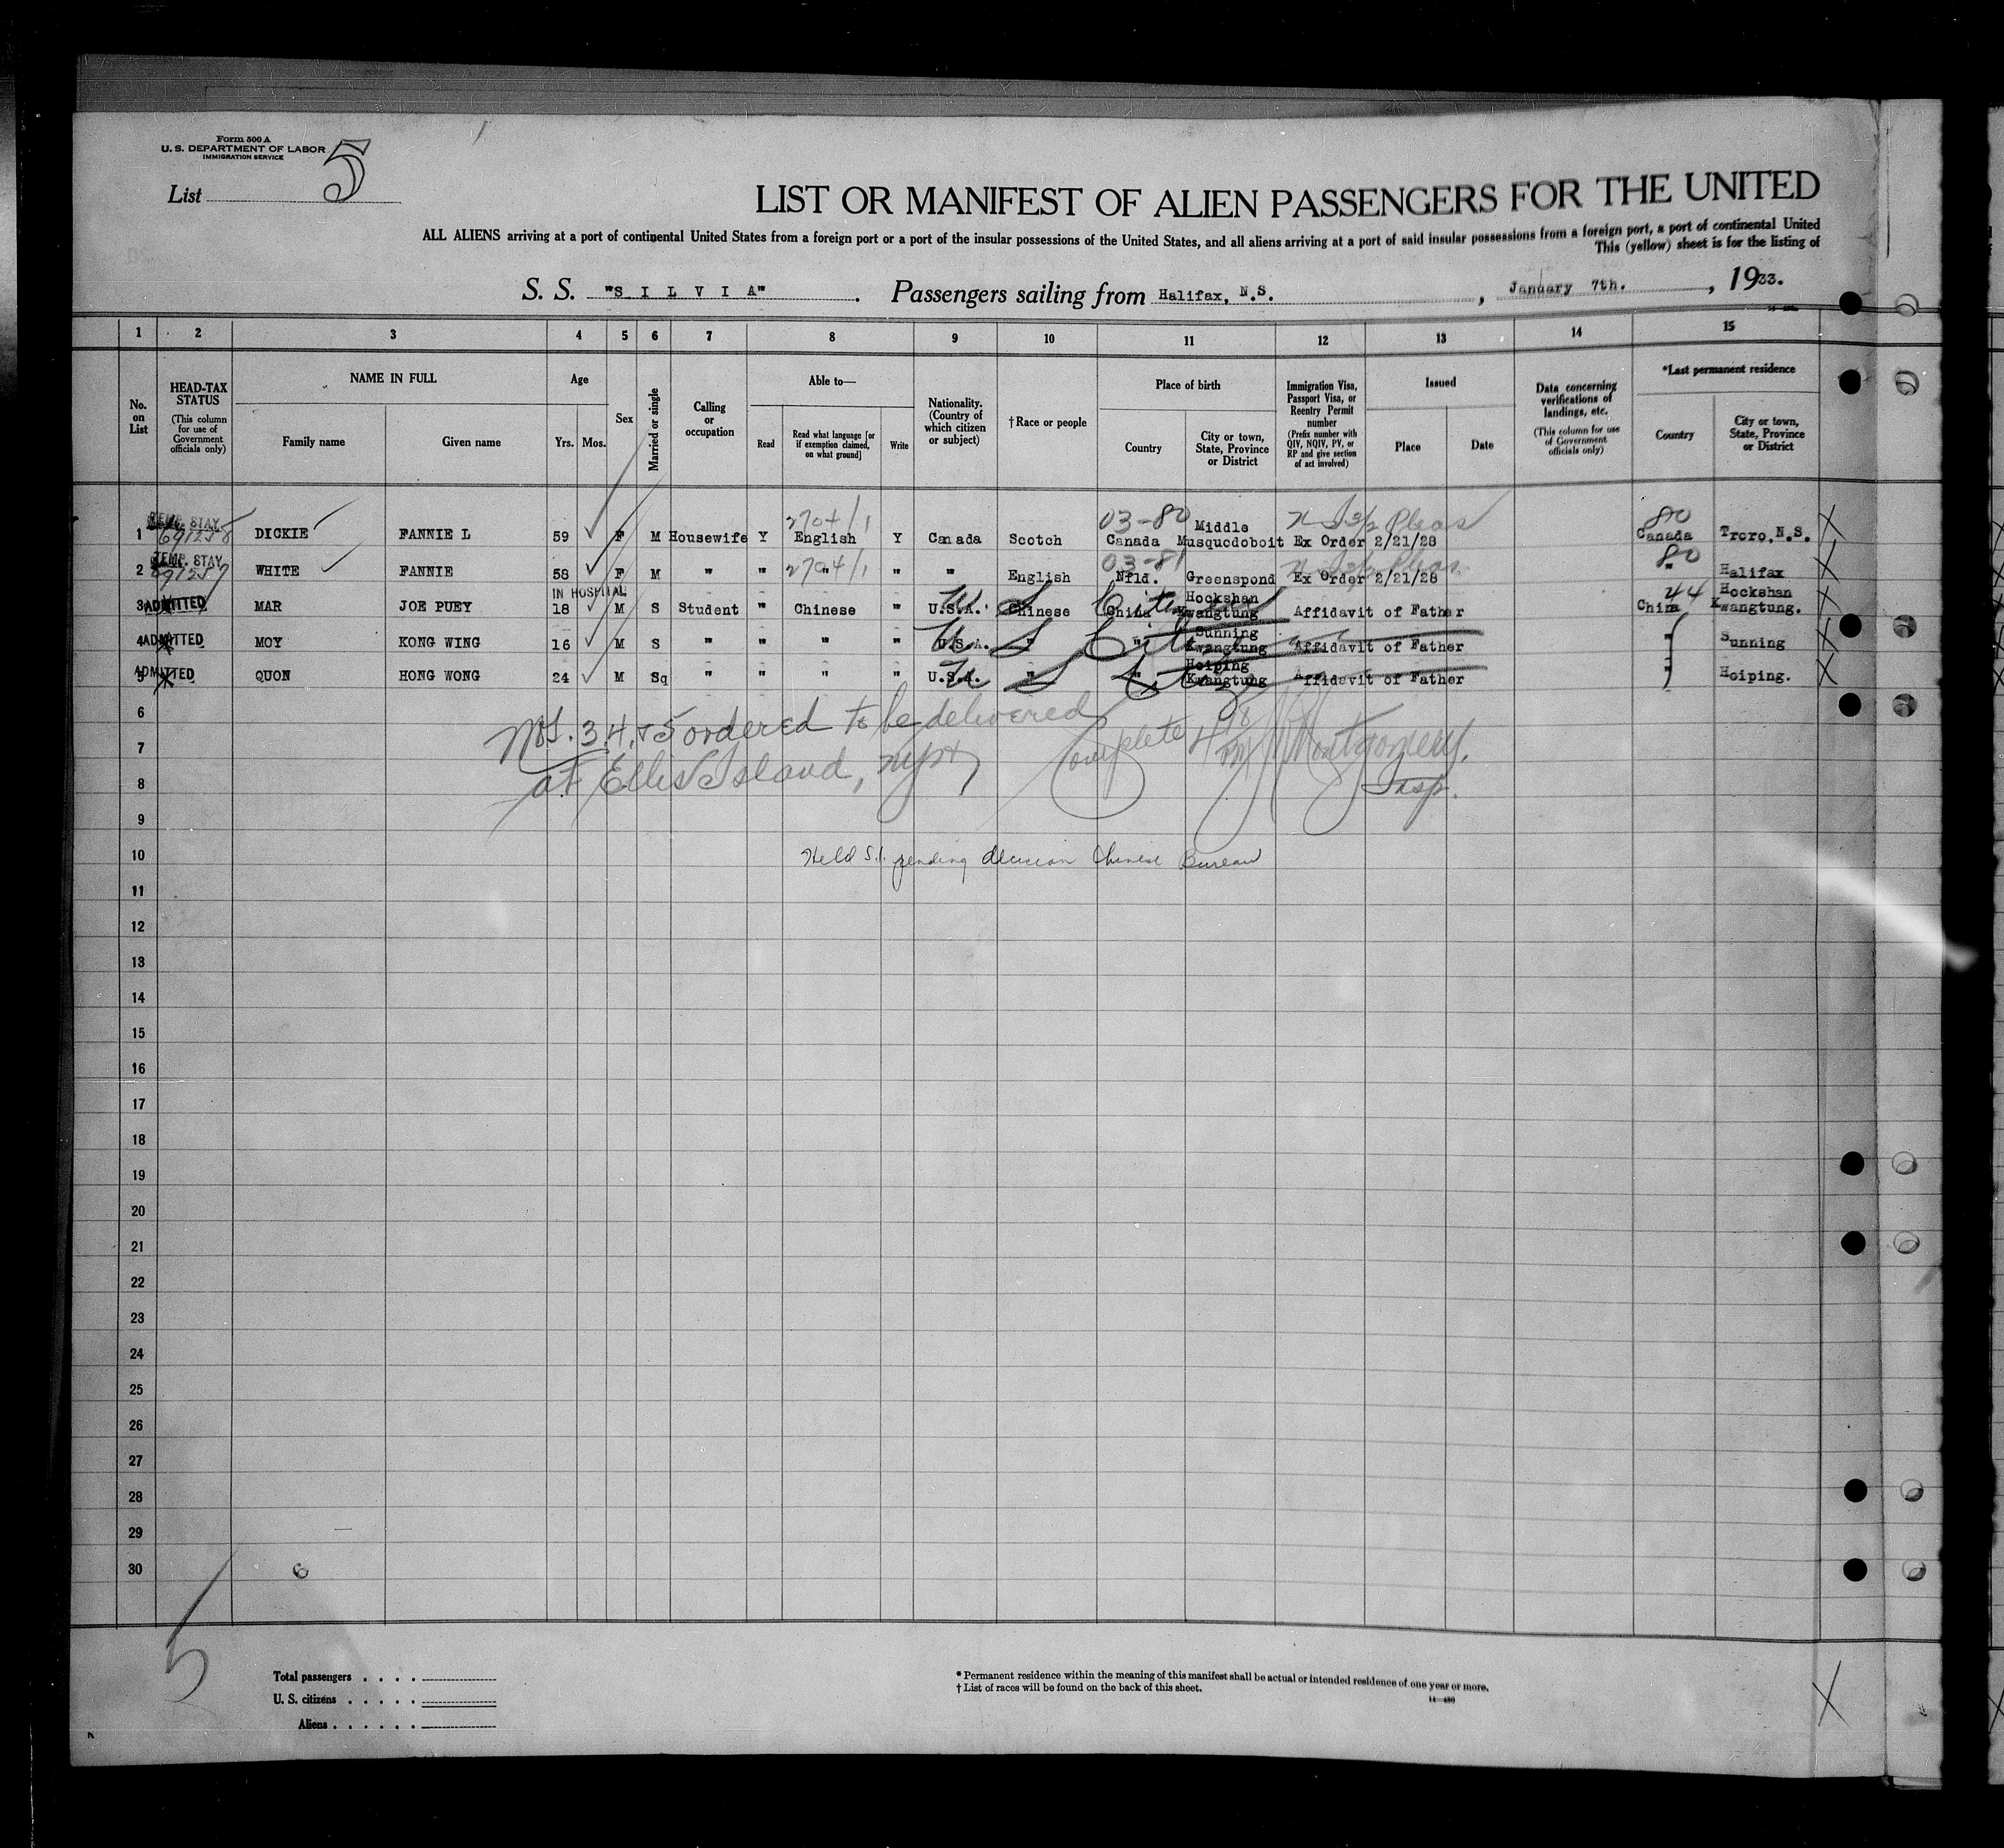 Form 500 A
U. S. DEPARTMENT OF LABOR
IMMIGRATION SERVICE
List 5
LIST OR MANIFEST OF ALIEN PASSENGERS FOR THE UNITED
ALL ALIENS arriving at a port of continental United States from a foreign port or a port of the insular possessions of the United States, and all aliens arriving at a port of said insular possessions from a foreign port, a port of continental United
This (yellow) sheet is for the listing of
S. S. "S I L V I A" . Passengers sailing from Halifax, N.S. , January 7th. , 1933.
1 2 3 4 5 6 7 8 9 10 11 12 13 14 15
No. on List
HEAD-TAX STATUS (This column for use of Government officials only)
NAME IN FULL
Family name Given name
Age
Yrs. Mos.
Sex
Married or single
Calling or occupation
Able to—
Read Read what language [or if exemption claimed, on what ground] Write
Nationality. (Country of which citizen or subject)
†Race or people
Place of birth
Country City or town, State, Province or District
Immigration Visa, Passport Visa, or Reentry Permit number (Prefix number with QIV, NQIV, PV, or RP and give section of act involved)
Issued
Place Date
Data concerning verifications of landings, etc. (This column for use of Government officials only)
*Last permanent residence
Country City or town, State, Province or District
TEMP. STAY 2704/1 03-80 80
1 691258 DICKIE FANNIE L 59 F M Housewife Y English Y Canada Scotch Canada Middle Musquodoboit Ex Order 2/21/28 Canada Truro, N.S.
TEMP. STAY 2704/1 03-81 80
2 691257 WHITE FANNIE 58 F M " " " " " English Nfld. Greenspond Ex Order 2/21/28 " Halifax
IN HOSPITAL
3 ADMITTED MAR JOE PUEY 18 M S Student " Chinese " U.S.A. Chinese China Hockshan Kwangtung Affidavit of Father 44 China Hockshan Kwangtung.
U S Citizen
4 ADMITTED MOY KONG WING 16 M S " " " " U.S.A. " " Sunning Kwangtung Affidavit of Father " Sunning
U S Citizen
5 ADMITTED QUON HONG WONG 24 M Sq " " " " U.S.A. " " Hoiping Kwangtung Affidavit of Father " Hoiping.
U S Citizen
6
Nos. 3, 4, & 5 ordered to be delivered
7
at Ellis Island, Complete Montgomery.
8
Insp.
9
10 Held S.I. pending decision Chinese Bureau
11
12
13
14
15
16
17
18
19
20
21
22
23
24
25
26
27
28
29
30
5
Total passengers . . . .
U. S. citizens . . . . .
Aliens . . . . . .
* Permanent residence within the meaning of this manifest shall be actual or intended residence of one year or more.
† List of races will be found on the back of this sheet.
14—480